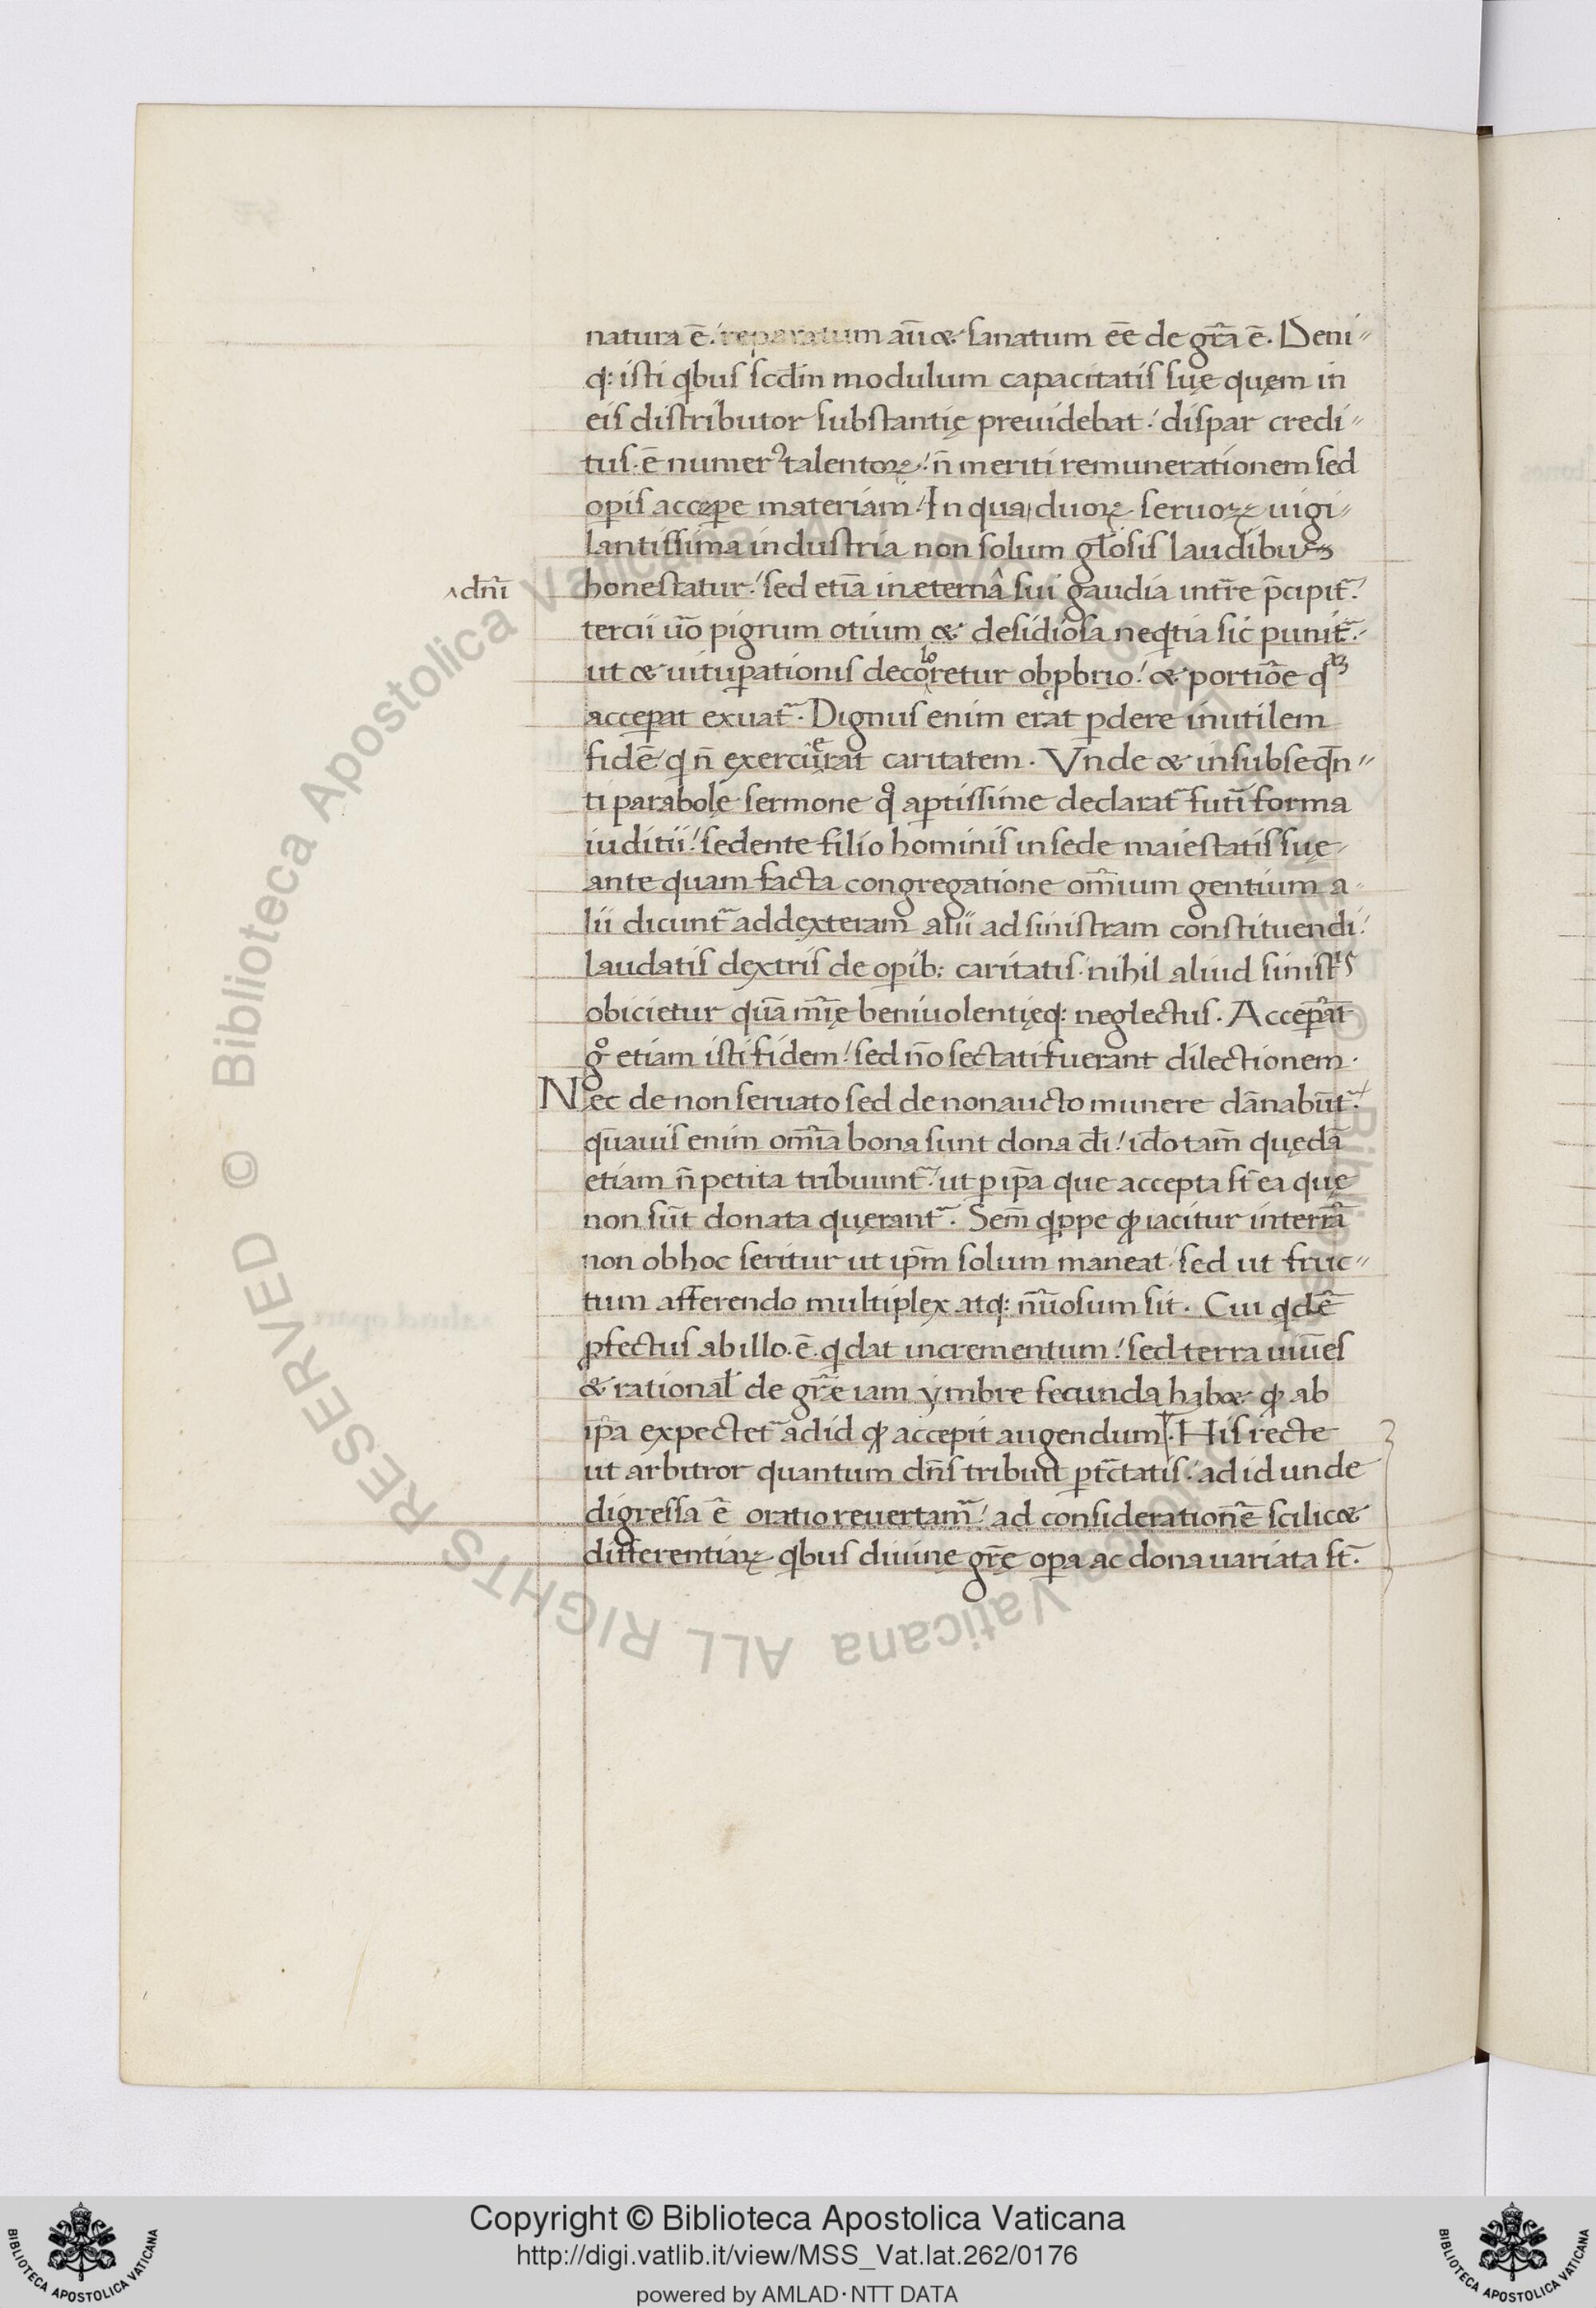 natura ē. reparatum aū & sanatum eē de gr̄a ē. Deni-
q: isti qbus scdm̄ modulum capacitatis suę quęm in
eis distributor substantię preuidebat. dispar credi-
tus. ē numerꝰ talentoꝝ. n̄ meriti remunerationem sed
opis accępe materiam. In qua duoꝝ seruoꝝ uigi-
lantissima industria non solum gl̄osis laudibus
^dn̄i
honestatur. sed etiā in æterna^ sui gaudia intr̄e p̄cipit᷑.
tercii ūo pigrum otium & desidiosa neqtia sic punit᷑.
ut & uitupationis decoloretur obpbrio. & portiōe quā
acceꝑat exuat᷑. Dignus enim erat ꝑdere inutilem
fidē q n̄ exercuerat caritatem. Vnde & in subseqn̄-
ti parabolę sermone qͦ aptissime declarat᷑ futi᷑ forma
iuditii. sedente filio hominis in sede maiestatis suę
ante quam facta congregatione om̄ium gentium a-
lii dicunt᷑ ad dęxteram alii ad sinistram constituendi.
laudatis dęxtris de opib; caritatis. nihil aliud sinistͥs
obicietur quā mīę beniuolentięq: neglectus. Acceꝑāt
gͦ etiam isti fidem. sed n̄o sectati fuerant dilectionem.
Nec de non seruato sed de non aucto munere dānabūt᷑.
quāuis enim om̄ia bona sunt dona d̄i. id̄o tam̄ quędā
etiam n̄ petita tribuunt᷑. ut ꝑ ip̄a que accepta st̄ ea quę
non sūt donata quęrant᷑. Sem̄ qppe qđ iacitur in terrā
non ob hoc seritur ut ip̄m solum maneat. sed ut fruc-
tum afferendo multiplex atq: nūosum sit. Cui qdē
ꝓfectus ab illo. ē. q dat incrementum. sed terra uiūes
& rational̄ de gr̄e iam ymbre fecunda hab& qđ ab
ip̄a expectet᷑ ad id qđ accepit augendum. His recte
ut arbitror quantum dn̄s tribuit ꝑtc̄tatis. ad id unde
digressa ē oratio reuertam᷑. ad considerationē scilic&
differentiaꝝ qbus diuinę gr̄ę oꝑa ac dona uariata st̄.
Copyright © Biblioteca Apostolica Vaticana
http://digi.vatlib.it/view/MSS_Vat.lat.262/0176
powered by AMLAD·NTT DATA